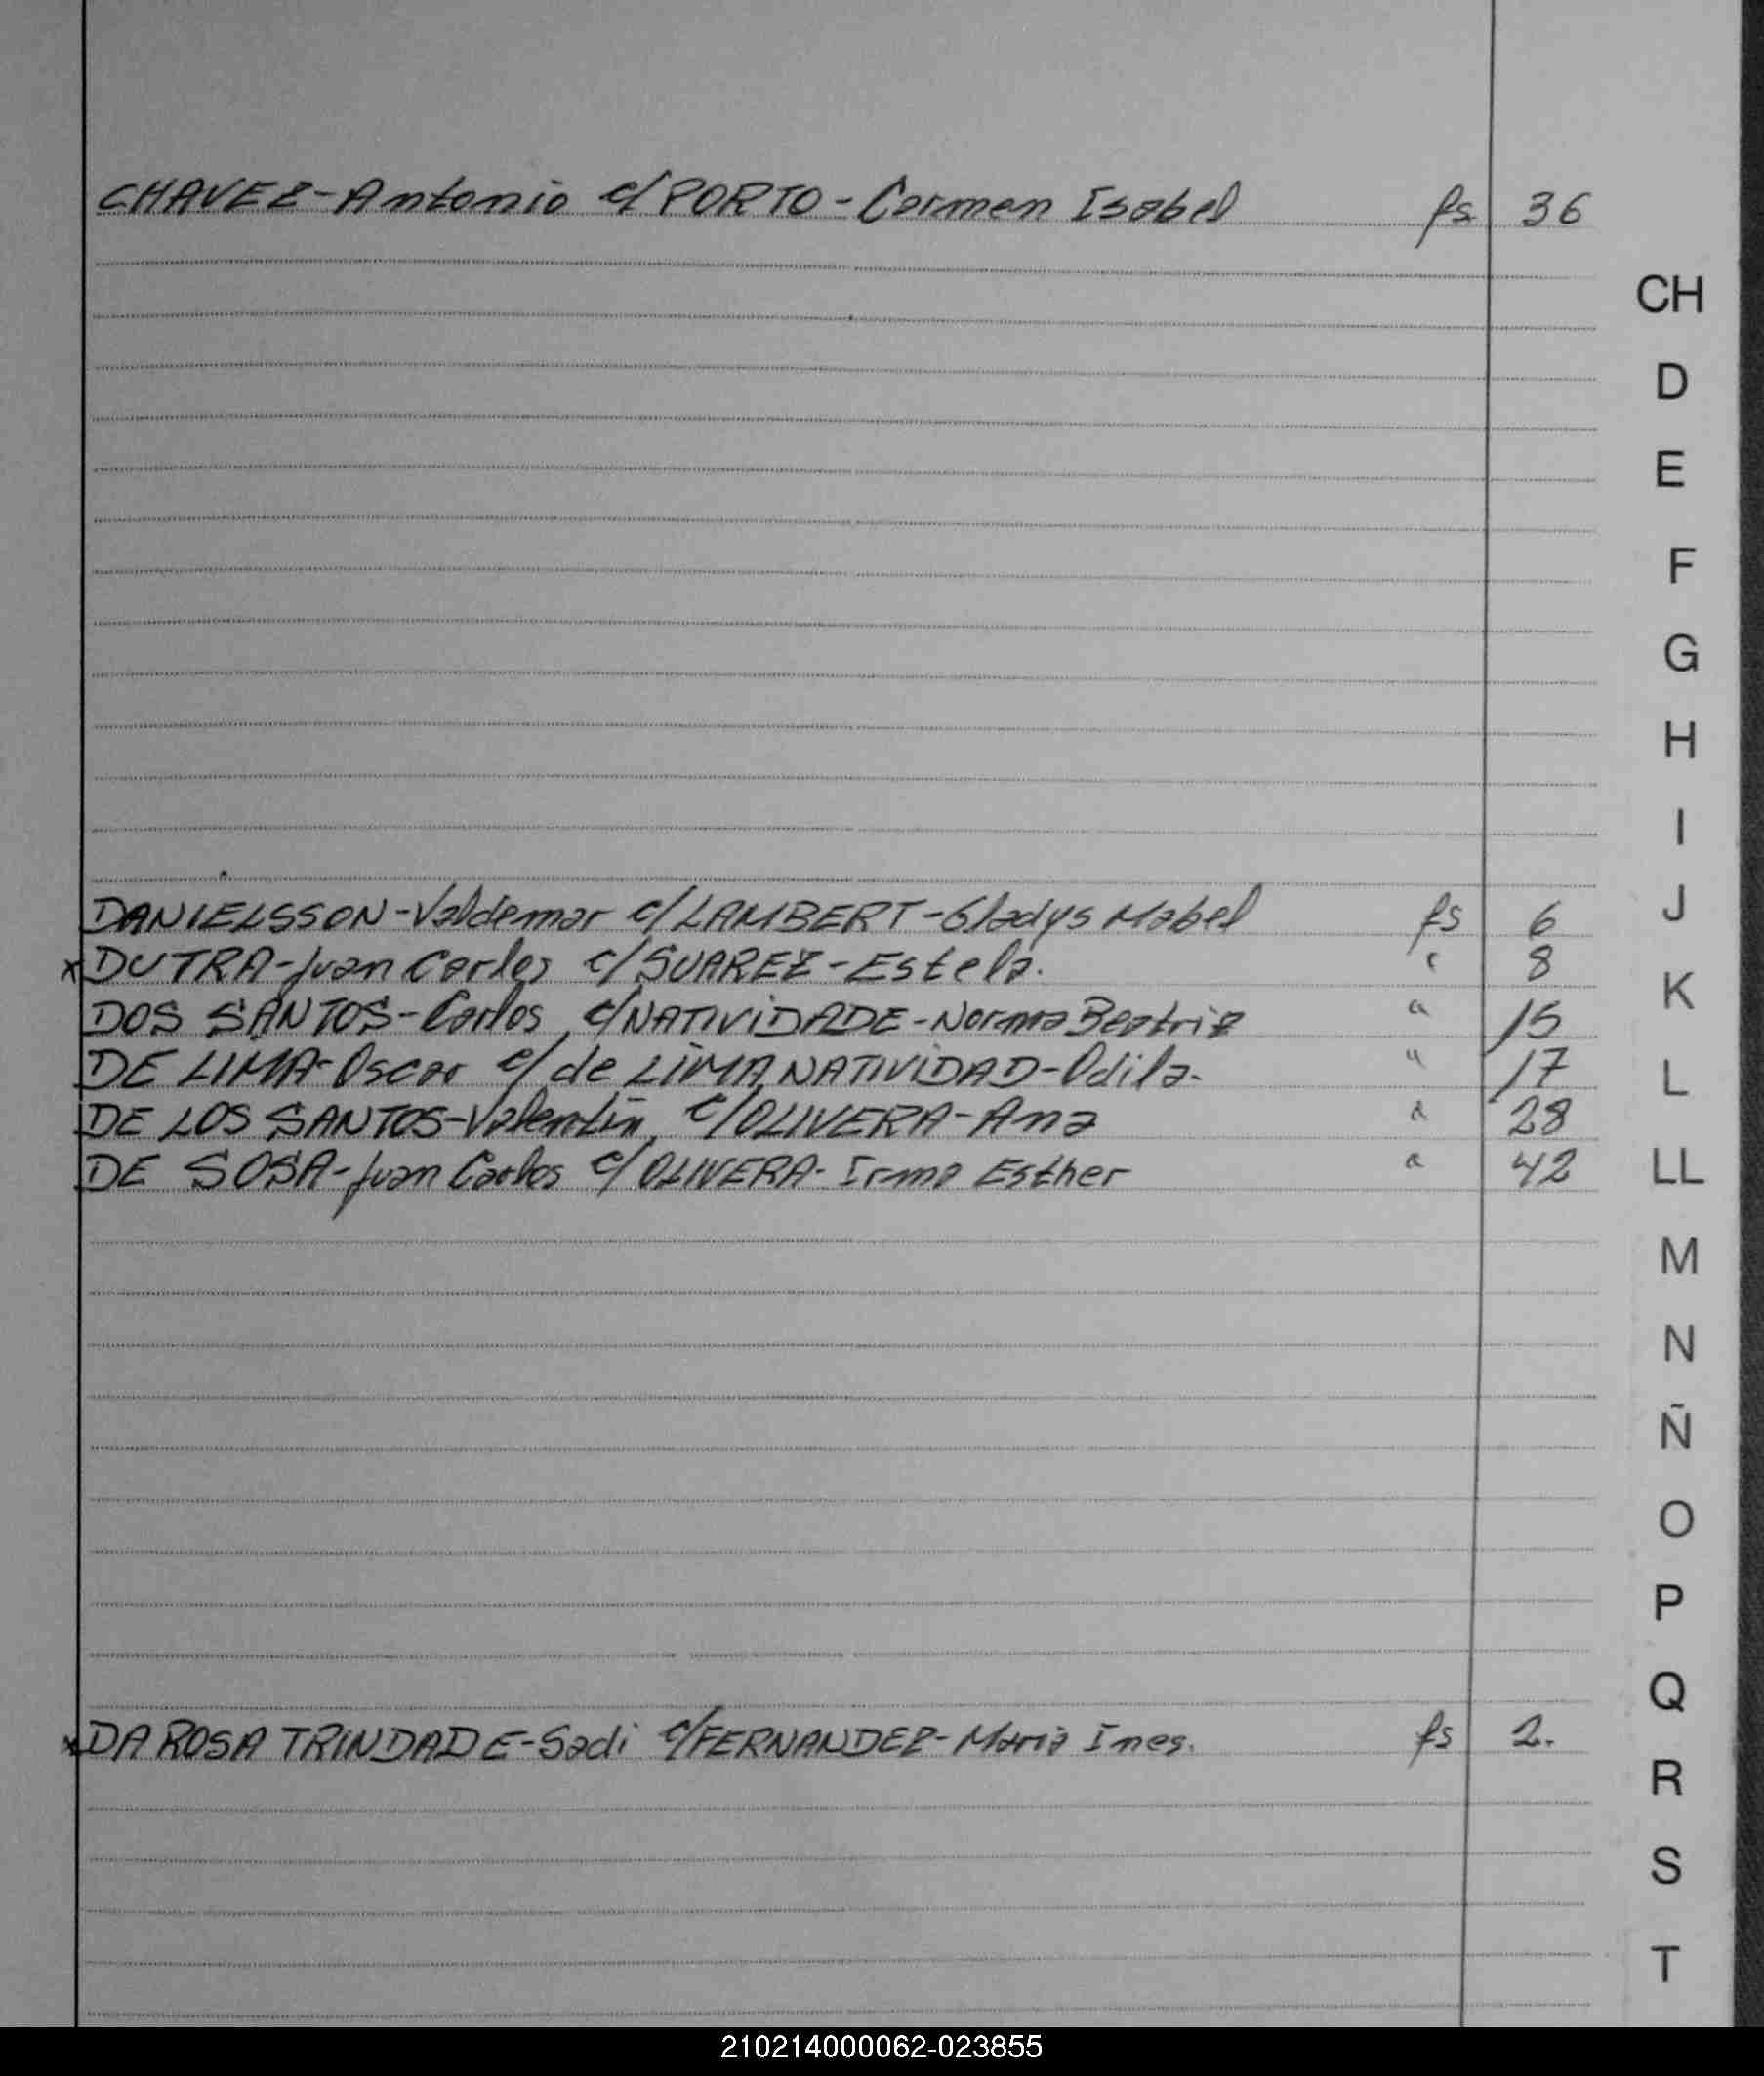 CHAVEZ-Antonio c/PORTO-Carmen Isabel fs 36
CH
D
E
F
G
H
I
J
DANIELSSON-Valdemar c/LAMBERT-Gladys Mabel fs 6
xDUTRA-Juan Carlos c/SUAREZ-Estela. " 8
K
DOS SANTOS-Carlos, c/NATIViDADE-Norma Beatriz " 15
DE LIMA-Oscar c/de LiMA NATIViDAD-Odila- " 17
L
DE LOS SANTOS-Valentin, c/OLIVERA-Ana " 28
DE SOSA-Juan Carlos c/OLIVERA-Irma Esther " 42
LL
M
N
Ñ
O
P
Q
xDA ROSA TRiNDADE-Sadi c/FERNANDEZ-Maria Ines. fs 2.
R
S
T
210214000062-023855